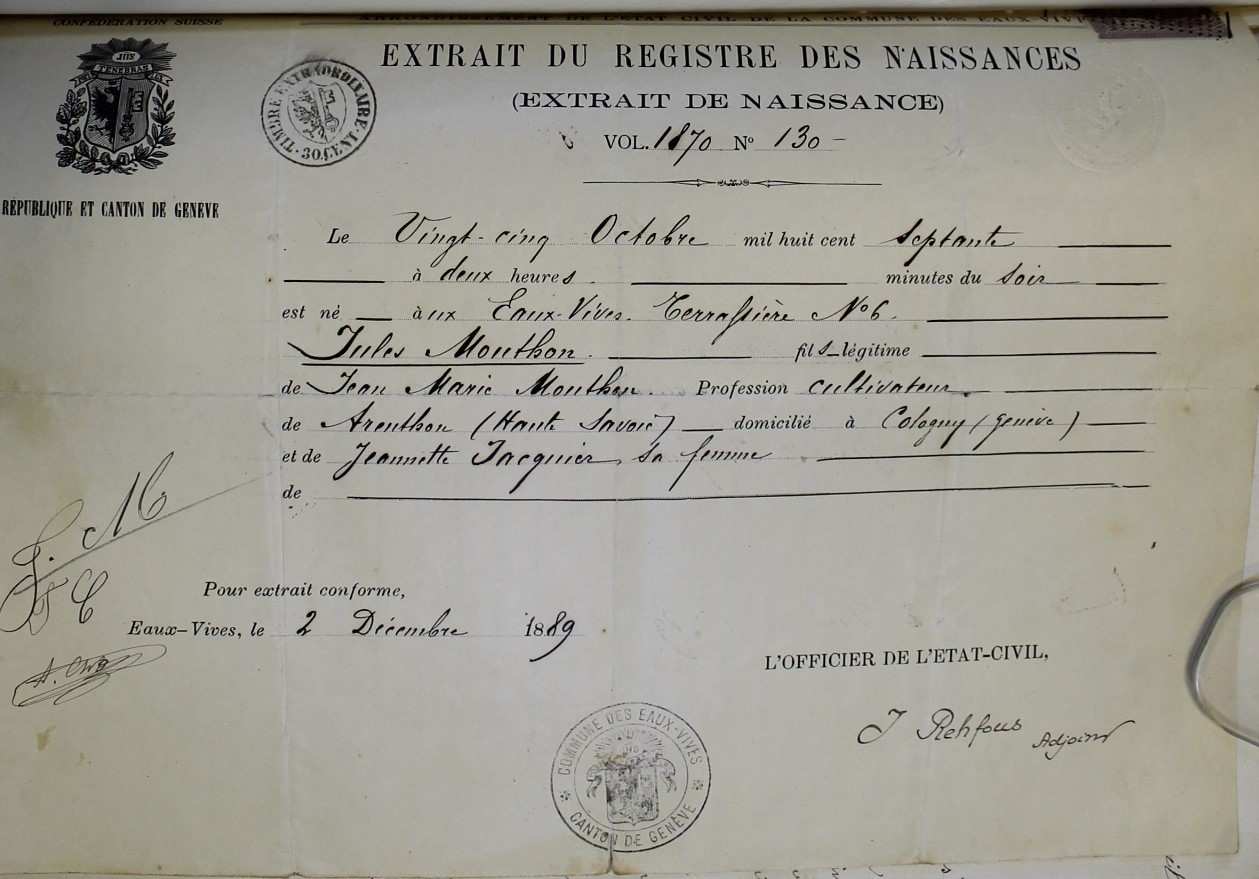 CONFÉDÉRATION SUISSE
ARRONDISSEMENT DE L'ÉTAT CIVIL DE LA COMMUNE DES EAUX-VIVES
EXTRAIT DU REGISTRE DES NAISSANCES
(EXTRAIT DE NAISSANCE)
VOL. 1870 No 130 -
TIMBRE EXTRAORDINAIRE
30 CENT
POST TENEBRAS
RÉPUBLIQUE ET CANTON DE GENEVE
Le Vingt-cinq Octobre mil huit cent septante
à deux heures. minutes du soir
est né à ux Eaux-Vives. Terrassière No 6.
Jules Mouthon. fils légitime
de Jean Marie Mouthon. Profession cultivateur
de Arenthon (Haute Savoie) domicilié à Cologny (Genève)
et de Jeannette Jacquier, sa femme
de
Pour extrait conforme,
Eaux-Vives, le 2 Décembre 1889
L'OFFICIER DE L'ETAT-CIVIL,
J Rehfous Adjoint
COMMUNE DES EAUX-VIVES
CANTON DE GENÈVE